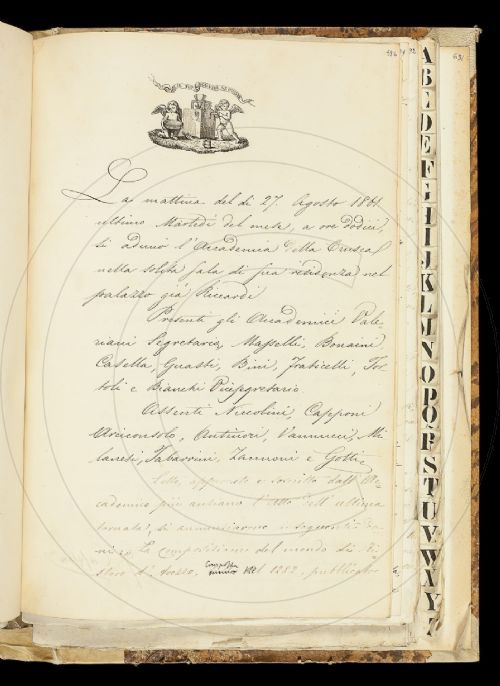 496
92
631
La mattina del dì 27. Agosto 1861.
ultimo Martedì del mese, a ore dodici,
si adunò l'Accademia della Crusca
nella solita sala di sua residenza nel
palazzo già Riccardi
Presenti gli Accademici Vale-
riani Segretario, Masselli, Bonaini
Casella, Guasti, Bini, Fraticelli, Tor-
toli e Bianchi Vicesegretario.
Assenti Niccolini, Capponi
Arciconsolo, Antinori, Vannucci, Mi-
lanesi, Tabarrini, Zannoni e Gotti
Letto, approvato e soscritto dall'Ac-
cademico più anziano l'Atto dell'ultima
tornata, si annunziarono i seguenti do-
ni: La composizione del mondo di Ri-
storo d'Arezzo, composta
nel 1282, pubblicato
A
B
C
D
E
F
G
H
I
J
K
L
M
N
O
P
Q
R
S
T
U
V
W
X
Y
Z